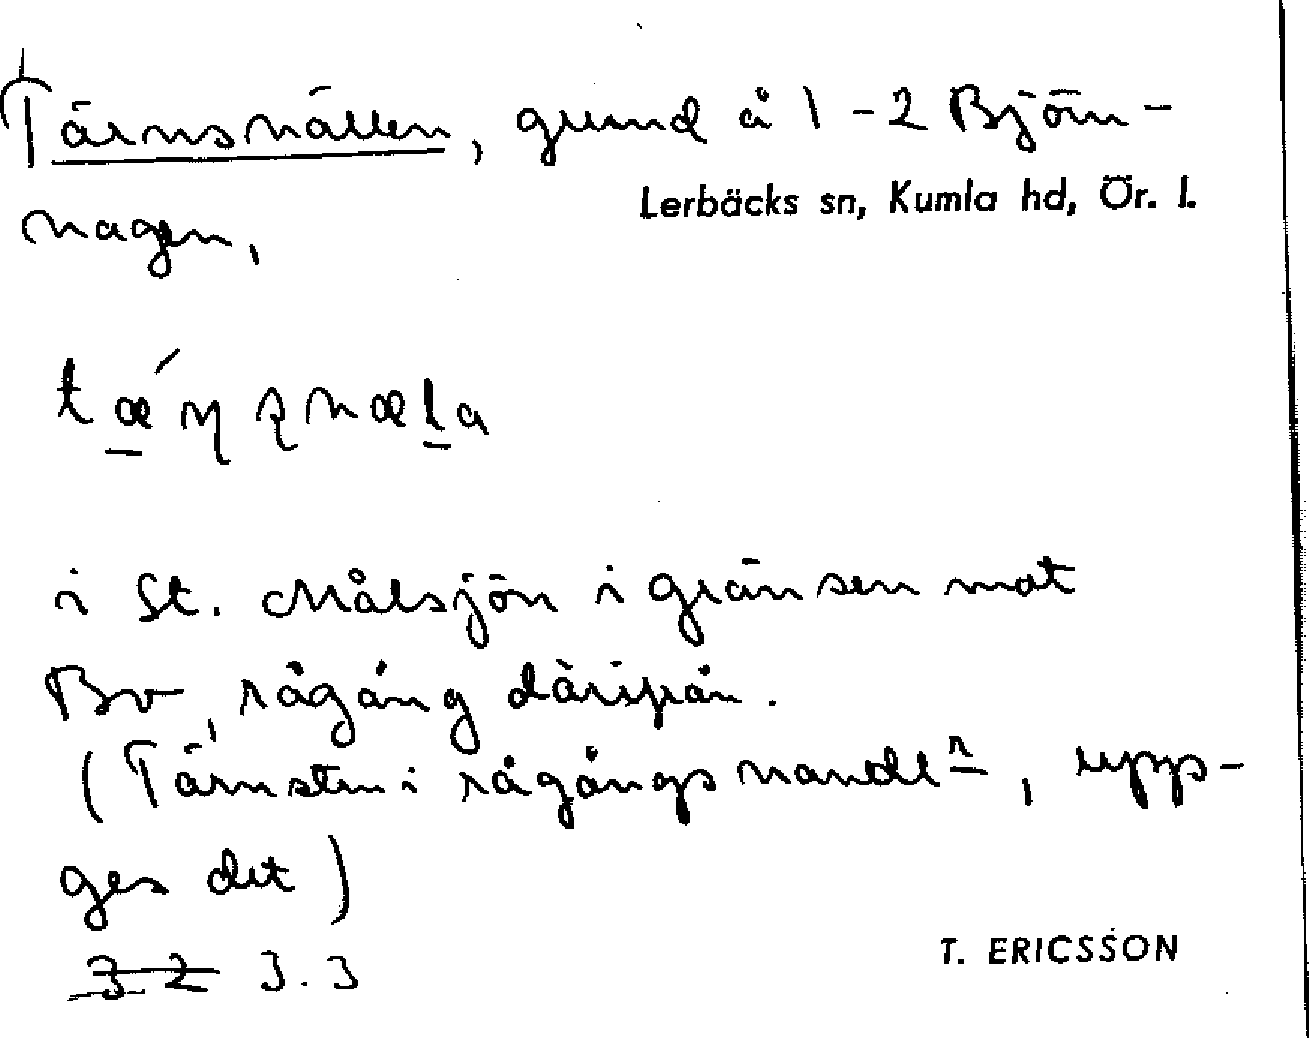 Tärnshällen, grund å 1-2 Björn-
Lerbäcks sn, Kumla hd, Ör. l.
hagen,
tǽ̠ɳʂhæɭ̠a
i St. Målsjön i gränsen mot
Bo, rågång därifrån.
(Tärnsten i rågångshandlr, upp-
ges det)
3 2 3.3
T. ERICSSON